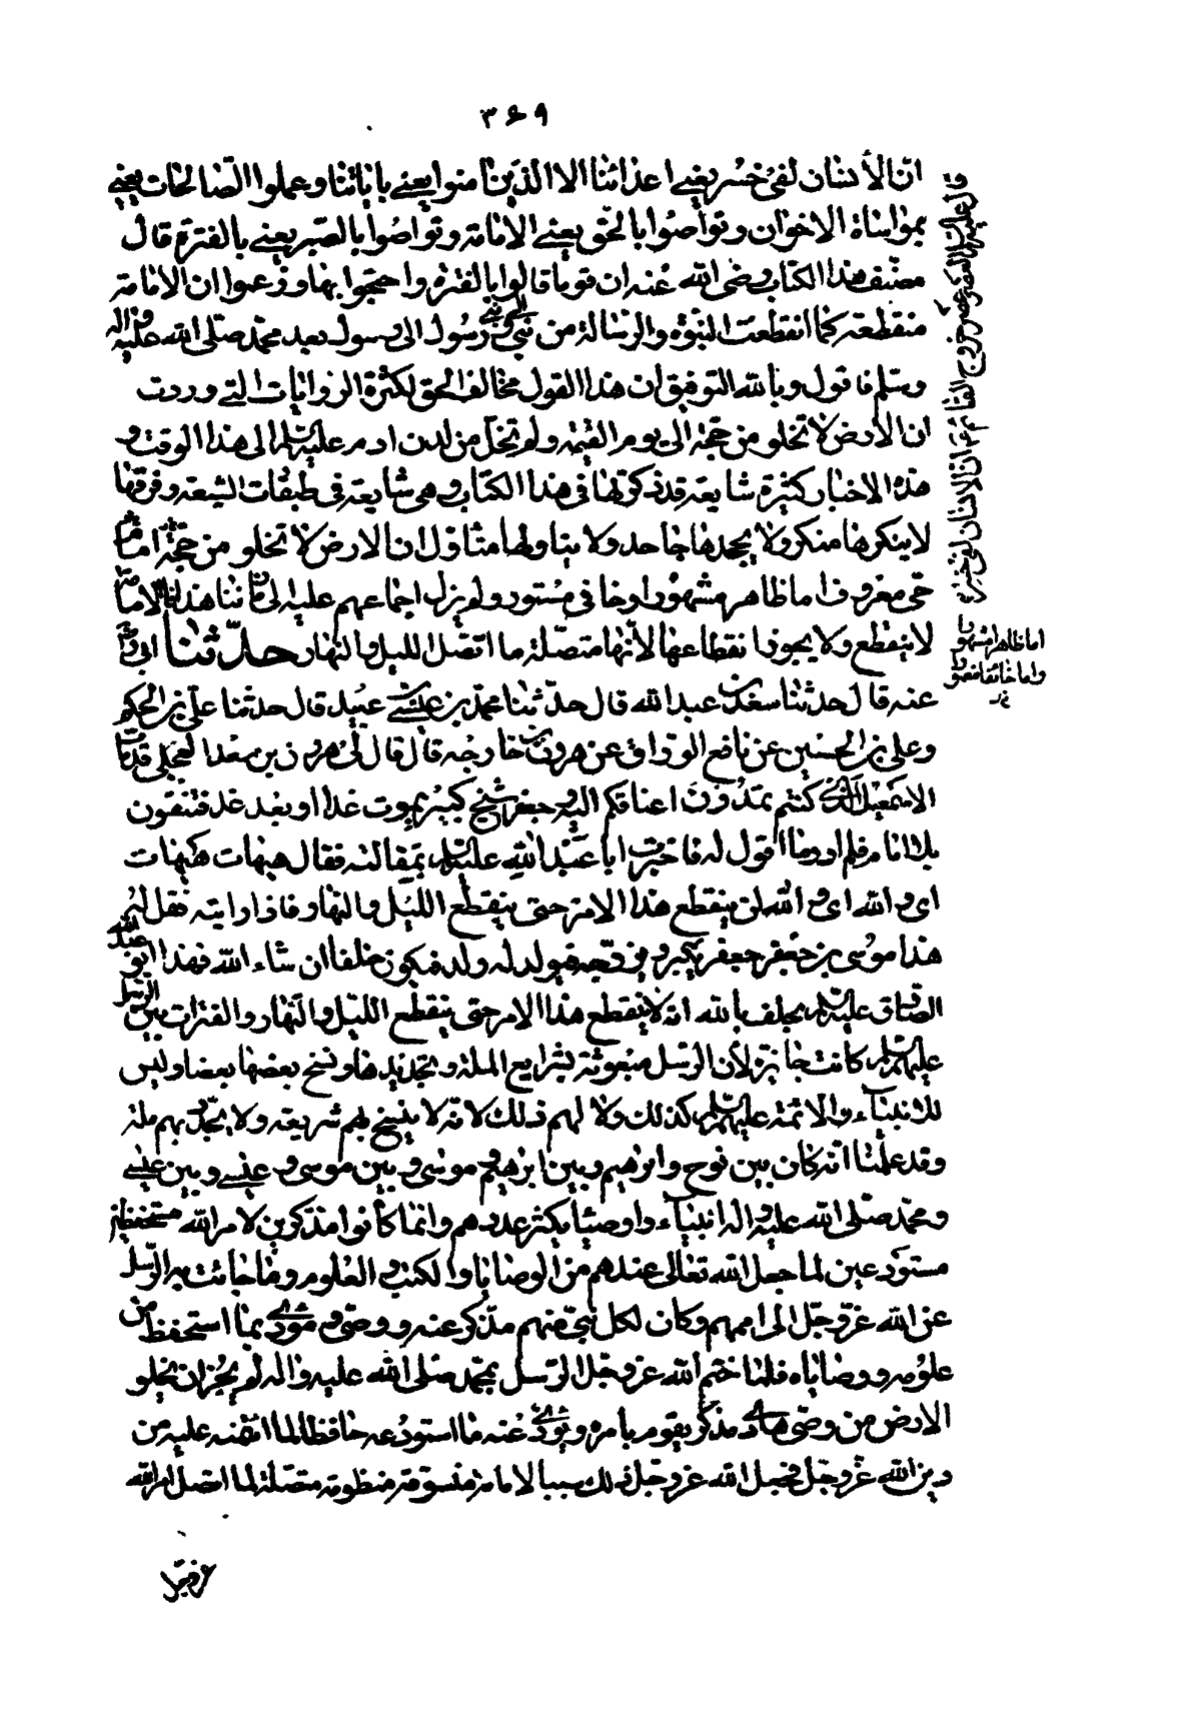 ٣٦٩
ان الانسان لفي خسر يعني اعدائنا الا الذين امنوا يعني باياتنا وعملوا الصالحات يعني
بمواساة الاخوان وتواصوا بالحق يعني الامامة وتواصوا بالصبر يعني بالفترة قال
مصنف هذا الكتاب رضى الله عنه ان قوما قالوا بالفترة واحتجوا بها وزعموا ان الامامة
منقطعة كما انقطعت النبوة والرسالة من نبي الى نبي ورسول الى رسول بعد محمد صلى الله عليه واله
وسلم فاقول وبالله التوفيق ان هذا القول مخالف الحق لكثرة الروايات التي وردت
ان الارض لا تخلو من حجة الى يوم القيمة ولم تخل من لدن ادم عليه السلم الى هذا الوقت و
هذه الاخبار كثيرة شايعة قد ذكرتها في هذا الكتاب وهي شايعة في طبقات الشيعة وفرقها
لا ينكرها منكر ولا يجحدها جاحد ولا يتاولها متاول ان الارض لا تخلو من حجة امام
حي معروف اما ظاهر مشهور او خافي مستور ولم يزل اجماعهم عليه الى زماننا هذا فالامامة
لا ينقطع ولا يجوز انقطاعها لانها متصلة ما اتصل الليل والنهار حدثنا ابي رضي الله
عنه قال حدثنا سعد بن عبد الله قال حدثنا محمد بن عيسى بن عبيد قال حدثنا علي بن الحكم
وعلي بن الحسين عن نافع الوراق عن هرون بن خارجه قال قال لي هرون بن سعد العجلي قد مات
الاسمعيل الذي كنتم تمدون اعناقكم اليه وجعفر شيخ كبير يموت غدا او بعد غد فتبقون
بلا امام فلم ادر ما اقول له فاخبرت ابا عبد الله عليه السلم بمقالته فقال هيهات هيهات
ابى والله ابى والله ان ينقطع هذا الامر حتى ينقطع الليل والنهار فاذا رايته فقل له
هذا موسى بن جعفر يكبر ويزوجه فيولد له ولد فيكون خلفا ان شاء الله فهذا ابو عبد الله
الصادق عليه السلم يحلف بالله انه لا ينقطع هذا الامر حتى ينقطع الليل والنهار والفترات بين الرسل
عليهم السلم كانت جايزة لان الرسل مبعوثة بشرايع الملة وتجديدها ونسخ بعضها بعضا وليس
للانبياء والائمة عليهم السلم كذلك ولا لهم ذلك لانه لا ينسخ لهم شريعة ولا يجدد بهم ملة
وقد علمنا انه كان بين نوح وابرهيم وبين ابرهيم وموسى وبين موسى وعيسى وبين عيسى
ومحمد صلى الله عليه واله انبياء واوصياء يكثر عددهم وانما كانوا مذكرين لامر الله مستحفظين
مستودعين لما جعل الله تعالى عندهم من الوصايا والكتب والعلوم وما جائت به الرسل
عن الله عز وجل الى اممهم وكان لكل نبي منهم مذكر عنه ووصى ومؤدى بما استحفظ من
علومه ووصاياه فلما ختم الله عز وجل الرسل بمحمد صلى الله عليه واله لم يجز ان يخلو
الارض من وصى هادى مذكر يقوم بامره ويؤدى عنه ما استودعه حافظا لما ائتمنه عليه من
دين الله عز وجل فجعل الله عز وجل ذلك سببا لامامة منسوقة منظومة متصلة لما اتصل امر الله
عز وجل
قال عليه السلم العصر عصر خروج القائم ع ان الانسان لفي خسر
اما ظاهر مشهور
واما خائفا مغمور